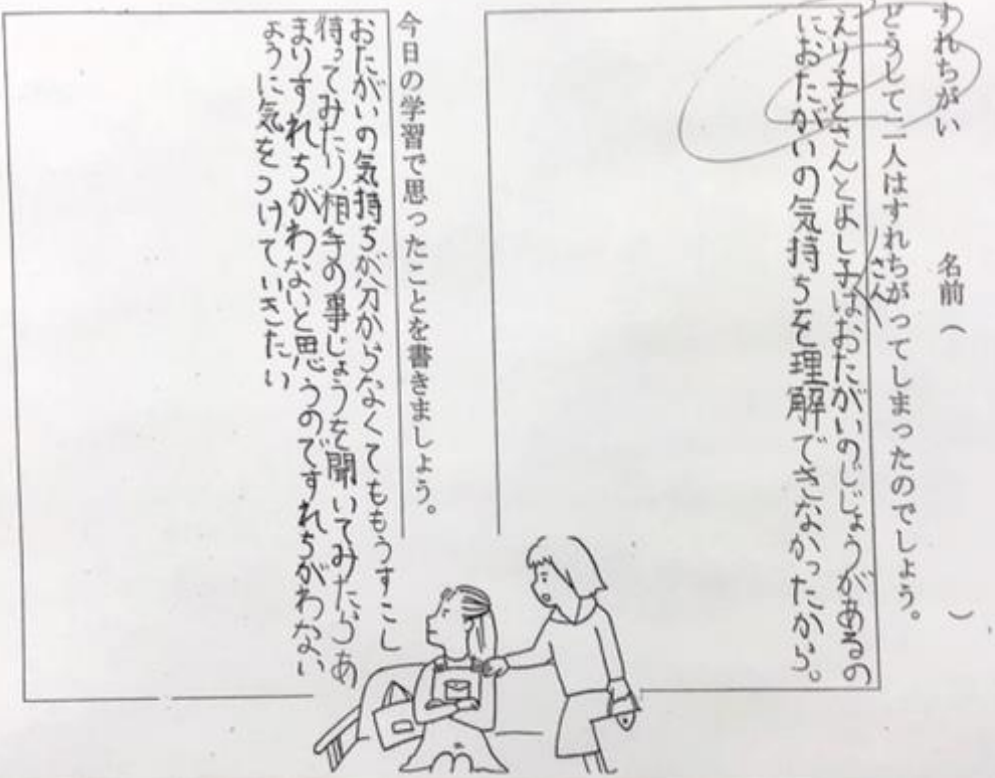 すれちがい
名前（　　　）
どうして二人はすれちがってしまったのでしょう。
えり子とさんとよし子はおたがいのじじょうがあるの
さん
におたがいの気持ちを理解できなかったから。
今日の学習で思ったことを書きましょう。
おたがいの気持ちが分からなくてももうすこし
待ってみたり、相手の事じょうを聞いてみたらあ
まりすれちがわないと思うのですれちがわない
ように気をつけていきたい